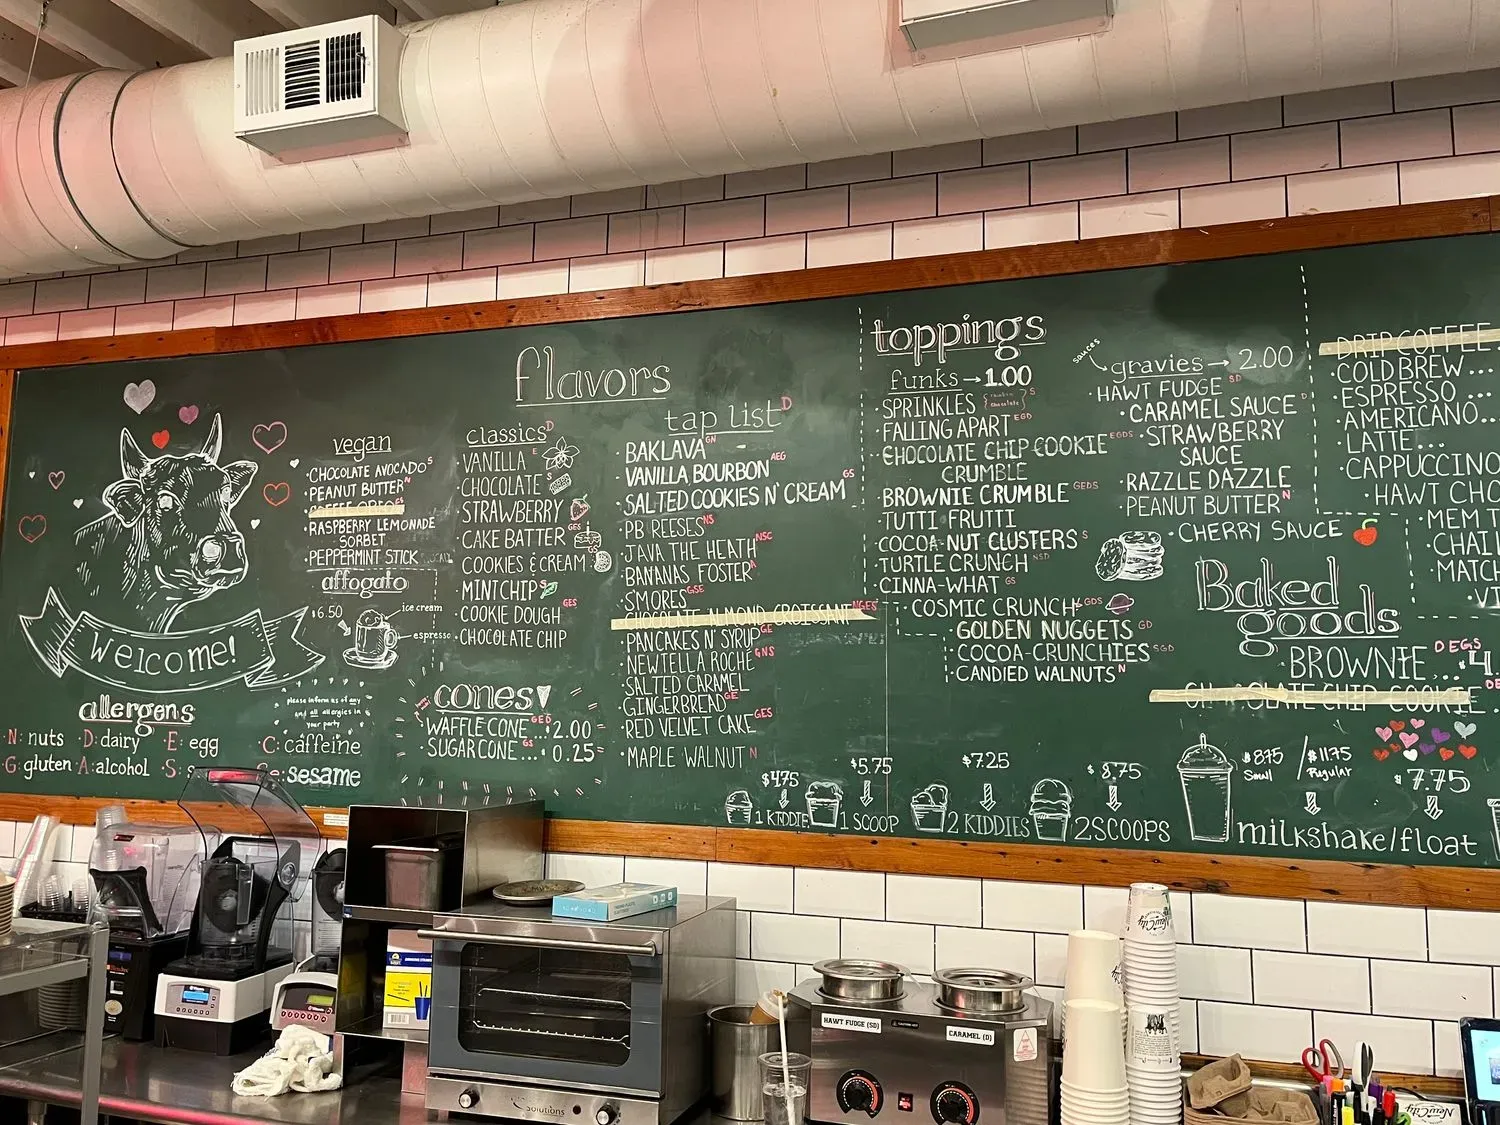 flavors
vegan
·CHOCOLATE AVOCADO S
·PEANUT BUTTER N
·RASPBERRY LEMONADE
SORBET
·PEPPERMINT STICK
affogato
$6.50
ice cream
espresso
Welcome!
allergens
please inform us of any
and all allergies in
your party
·N: nuts ·D: dairy ·E: egg ·C: caffeine
·G: gluten ·A: alcohol ·S: sesame
classics D
·VANILLA E
·CHOCOLATE S
·STRAWBERRY
·CAKE BATTER GES
·COOKIES & CREAM GS
·MINT CHIP S
·COOKIE DOUGH GES
·CHOCOLATE CHIP
cones
·WAFFLE CONE GED ...2.00
·SUGAR CONE GS ...0.25
tap list D
·BAKLAVA GN
·VANILLA BOURBON AEG
·SALTED COOKIES N' CREAM GS
·PB REESE'S NS
·JAVA THE HEATH NSC
·BANANAS FOSTER A
·S'MORES GSE
·CHOCOLATE ALMOND CROISSANT NGES
·PANCAKES N' SYRUP GE
·NEWTELLA ROCHÉ GNS
·SALTED CARAMEL
·GINGERBREAD GE
·RED VELVET CAKE GES
·MAPLE WALNUT N
toppings
funks → 1.00
·SPRINKLES S
·FALLING APART EGD
·CHOCOLATE CHIP COOKIE EGDS
CRUMBLE
·BROWNIE CRUMBLE GEDS
·TUTTI FRUTTI
·COCOA-NUT CLUSTERS S
·TURTLE CRUNCH NSD
·CINNA-WHAT GS
·COSMIC CRUNCH GDS
·GOLDEN NUGGETS GD
·COCOA-CRUNCHIES SGD
·CANDIED WALNUTS N
sauces
gravies → 2.00
·HAWT FUDGE SD
·CARAMEL SAUCE D
·STRAWBERRY
SAUCE
·RAZZLE DAZZLE
·PEANUT BUTTER N
·CHERRY SAUCE
Baked
goods
·BROWNIE... DEGS $4.
·CHOCOLATE CHIP COOKIE
·DRIP COFFEE
·COLD BREW...
·ESPRESSO...
·AMERICANO...
·LATTE...
·CAPPUCCINO
·HAWT CHO
·MEM T
·CHAI
·MATCH
$4.75
1 KIDDIE
$5.75
1 SCOOP
$7.25
2 KIDDIES
$8.75
2 SCOOPS
$8.75
Small
$11.75
Regular
$7.75
milkshake/float
HAWT FUDGE (SD)
CARAMEL (D)
Solutions
NewCity
NewCity